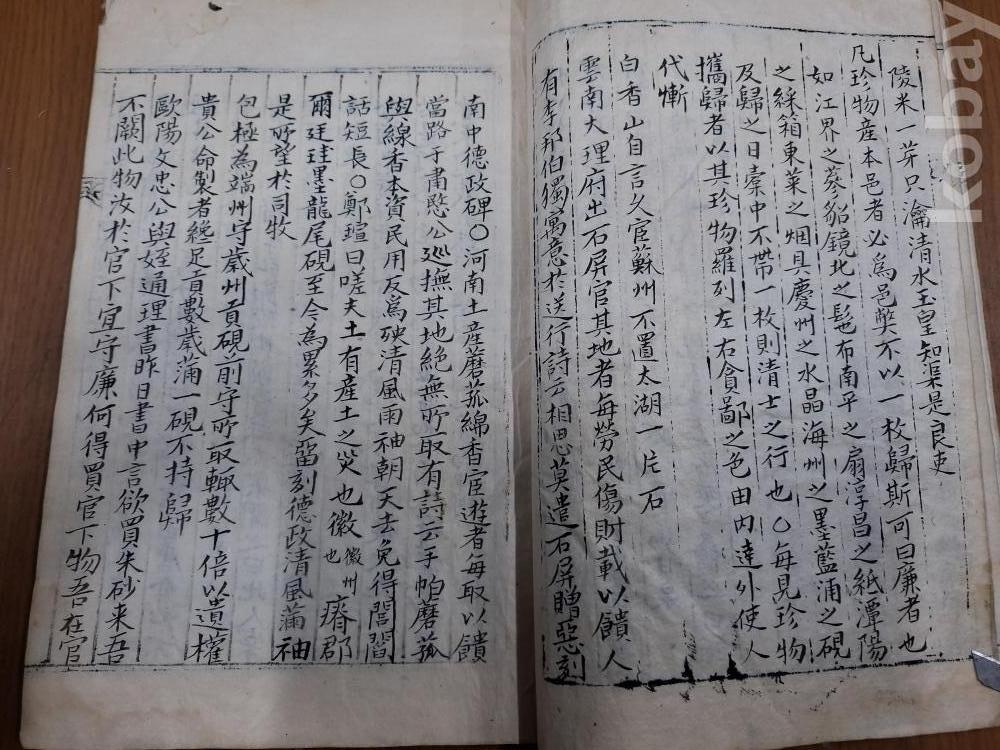 陵米一芽只瀹清水玉皇知渠是良吏
凡珍物産本邑者必為邑獘不以一枚歸斯可曰廉者也
如江界之蔘貂鏡北之髢布南平之扇淳昌之紙潭陽
之綵箱東萊之烟具慶州之水晶海州之墨藍浦之硯
及歸之日槖中不帶一枚則清士之行也〇每見珍物
攜歸者以其珍物羅列左右貪鄙之色由内達外使人
代慚
白香山自言久宦蘇州不置太湖一片石
雲南大理府出石屏官其地者每勞民傷財載以饋人
有李邦伯獨寓意於送行詩云相思莫遣石屏贈惡刻
南中德政碑〇河南土産蘑菰綿香宦遊者每取以饋
當路于肅愍公巡撫其地絶無所取有詩云手帕磨菰
與線香本資民用反爲殃清風雨袖朝天去免得閭閻
話短長〇鄭瑄曰嗟夫土有産土之災也徽徽州也瘠郡
爾廷珪墨龍尾硯至今為累多矣留刻德政清風蒲袖
是所望於司牧
包極為端州守歲州貢硯前守所取輙數十倍以遺權
貴公命製者纔足貢數歲滿一硯不持歸
歐陽文忠公與姪通理書昨日書中言欲買朱砂来吾
不闕此物汝於官下宜守廉何得買官下物吾在官
kobay